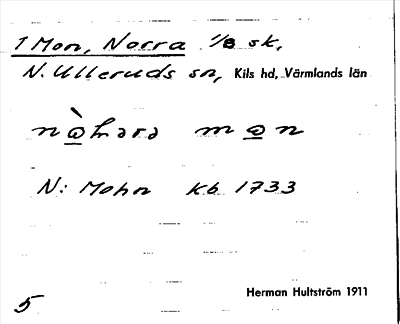 1 Mon, Norra 1/8 sk,
N. Ulleruds sn, Kils hd, Värmlands län
man
N: Mohn Kb 1733
Herman Hultström 1911
5